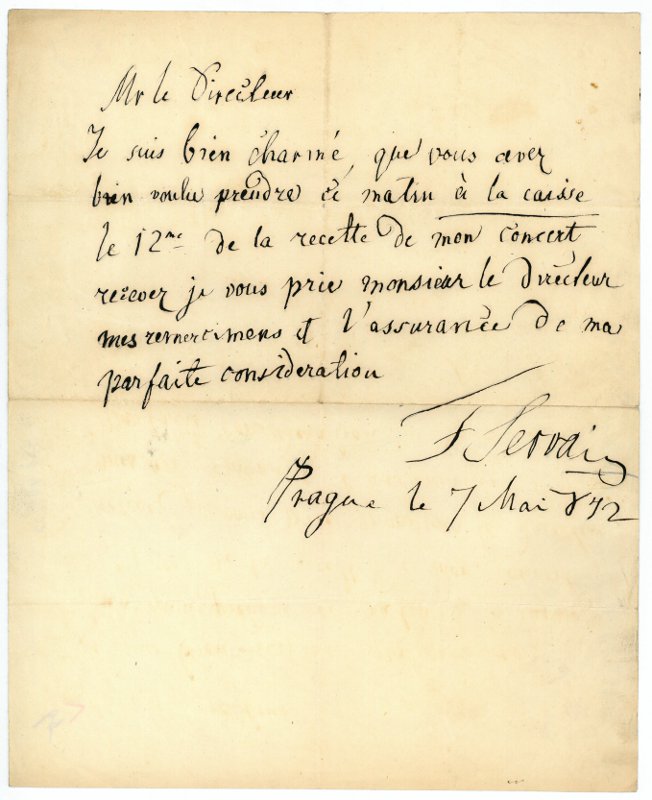 Mr le Directeur
Je suis bien charmé, que vous avez
bien voulu prendre ce matin à la caisse
le 12me de la recette de mon concert
recevez je vous prie monsieur le directeur
mes remercimens et l'assurance de ma
parfaite consideration
F Servais
Prague le 7 Mai 842